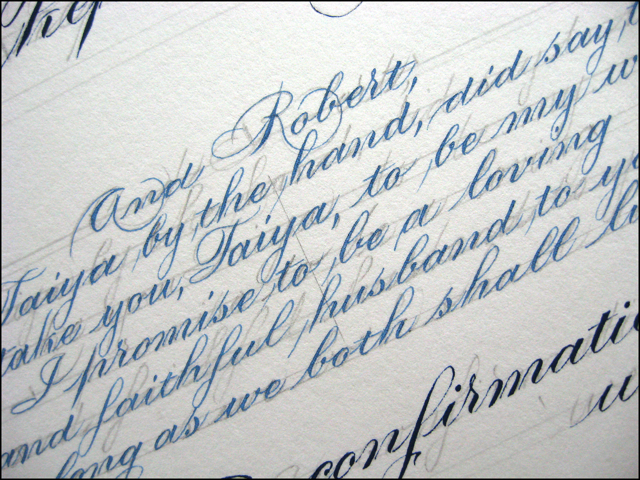 And Robert,
Taiya by the hand, did say
take you, Taiya, to be my
I promise to be a loving
and faithful husband to
long as we both shall